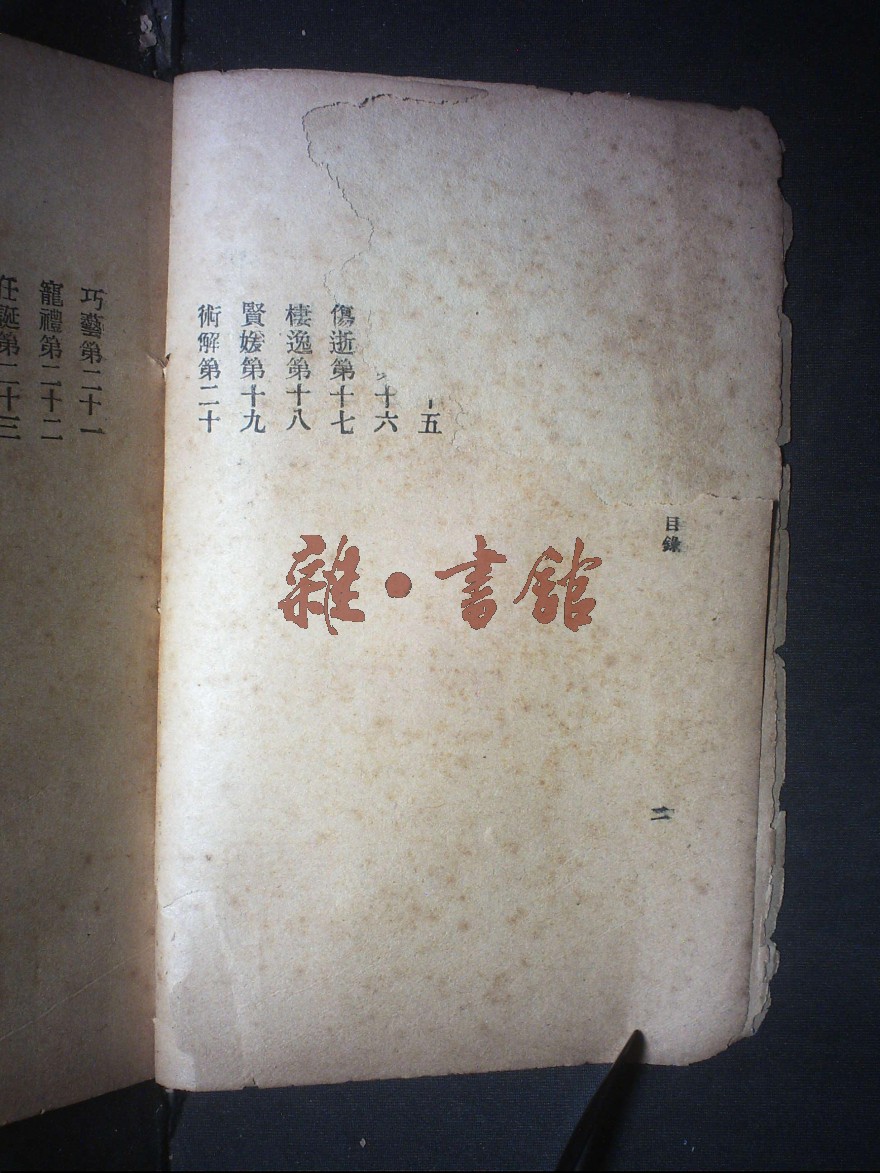 目錄
二
五
十六
傷逝第十七
棲逸第十八
賢媛第十九
術解第二十
巧藝第二十一
寵禮第二十二
任誕第二十三
雜·書館